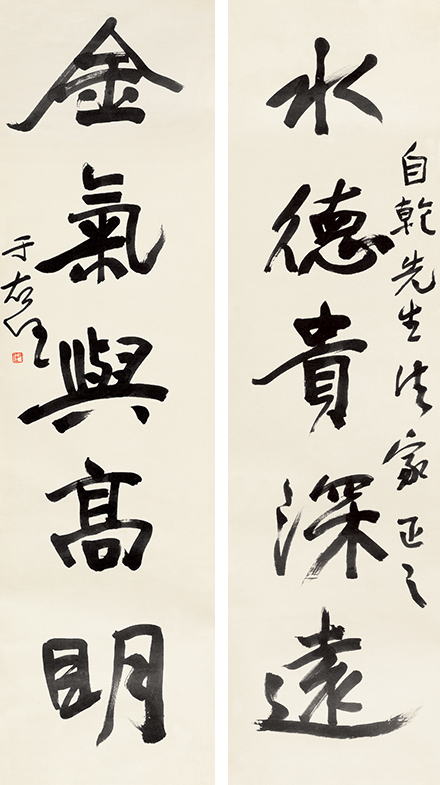 水德貴深遠
自乾先生法家正之
金氣與高明
于右任